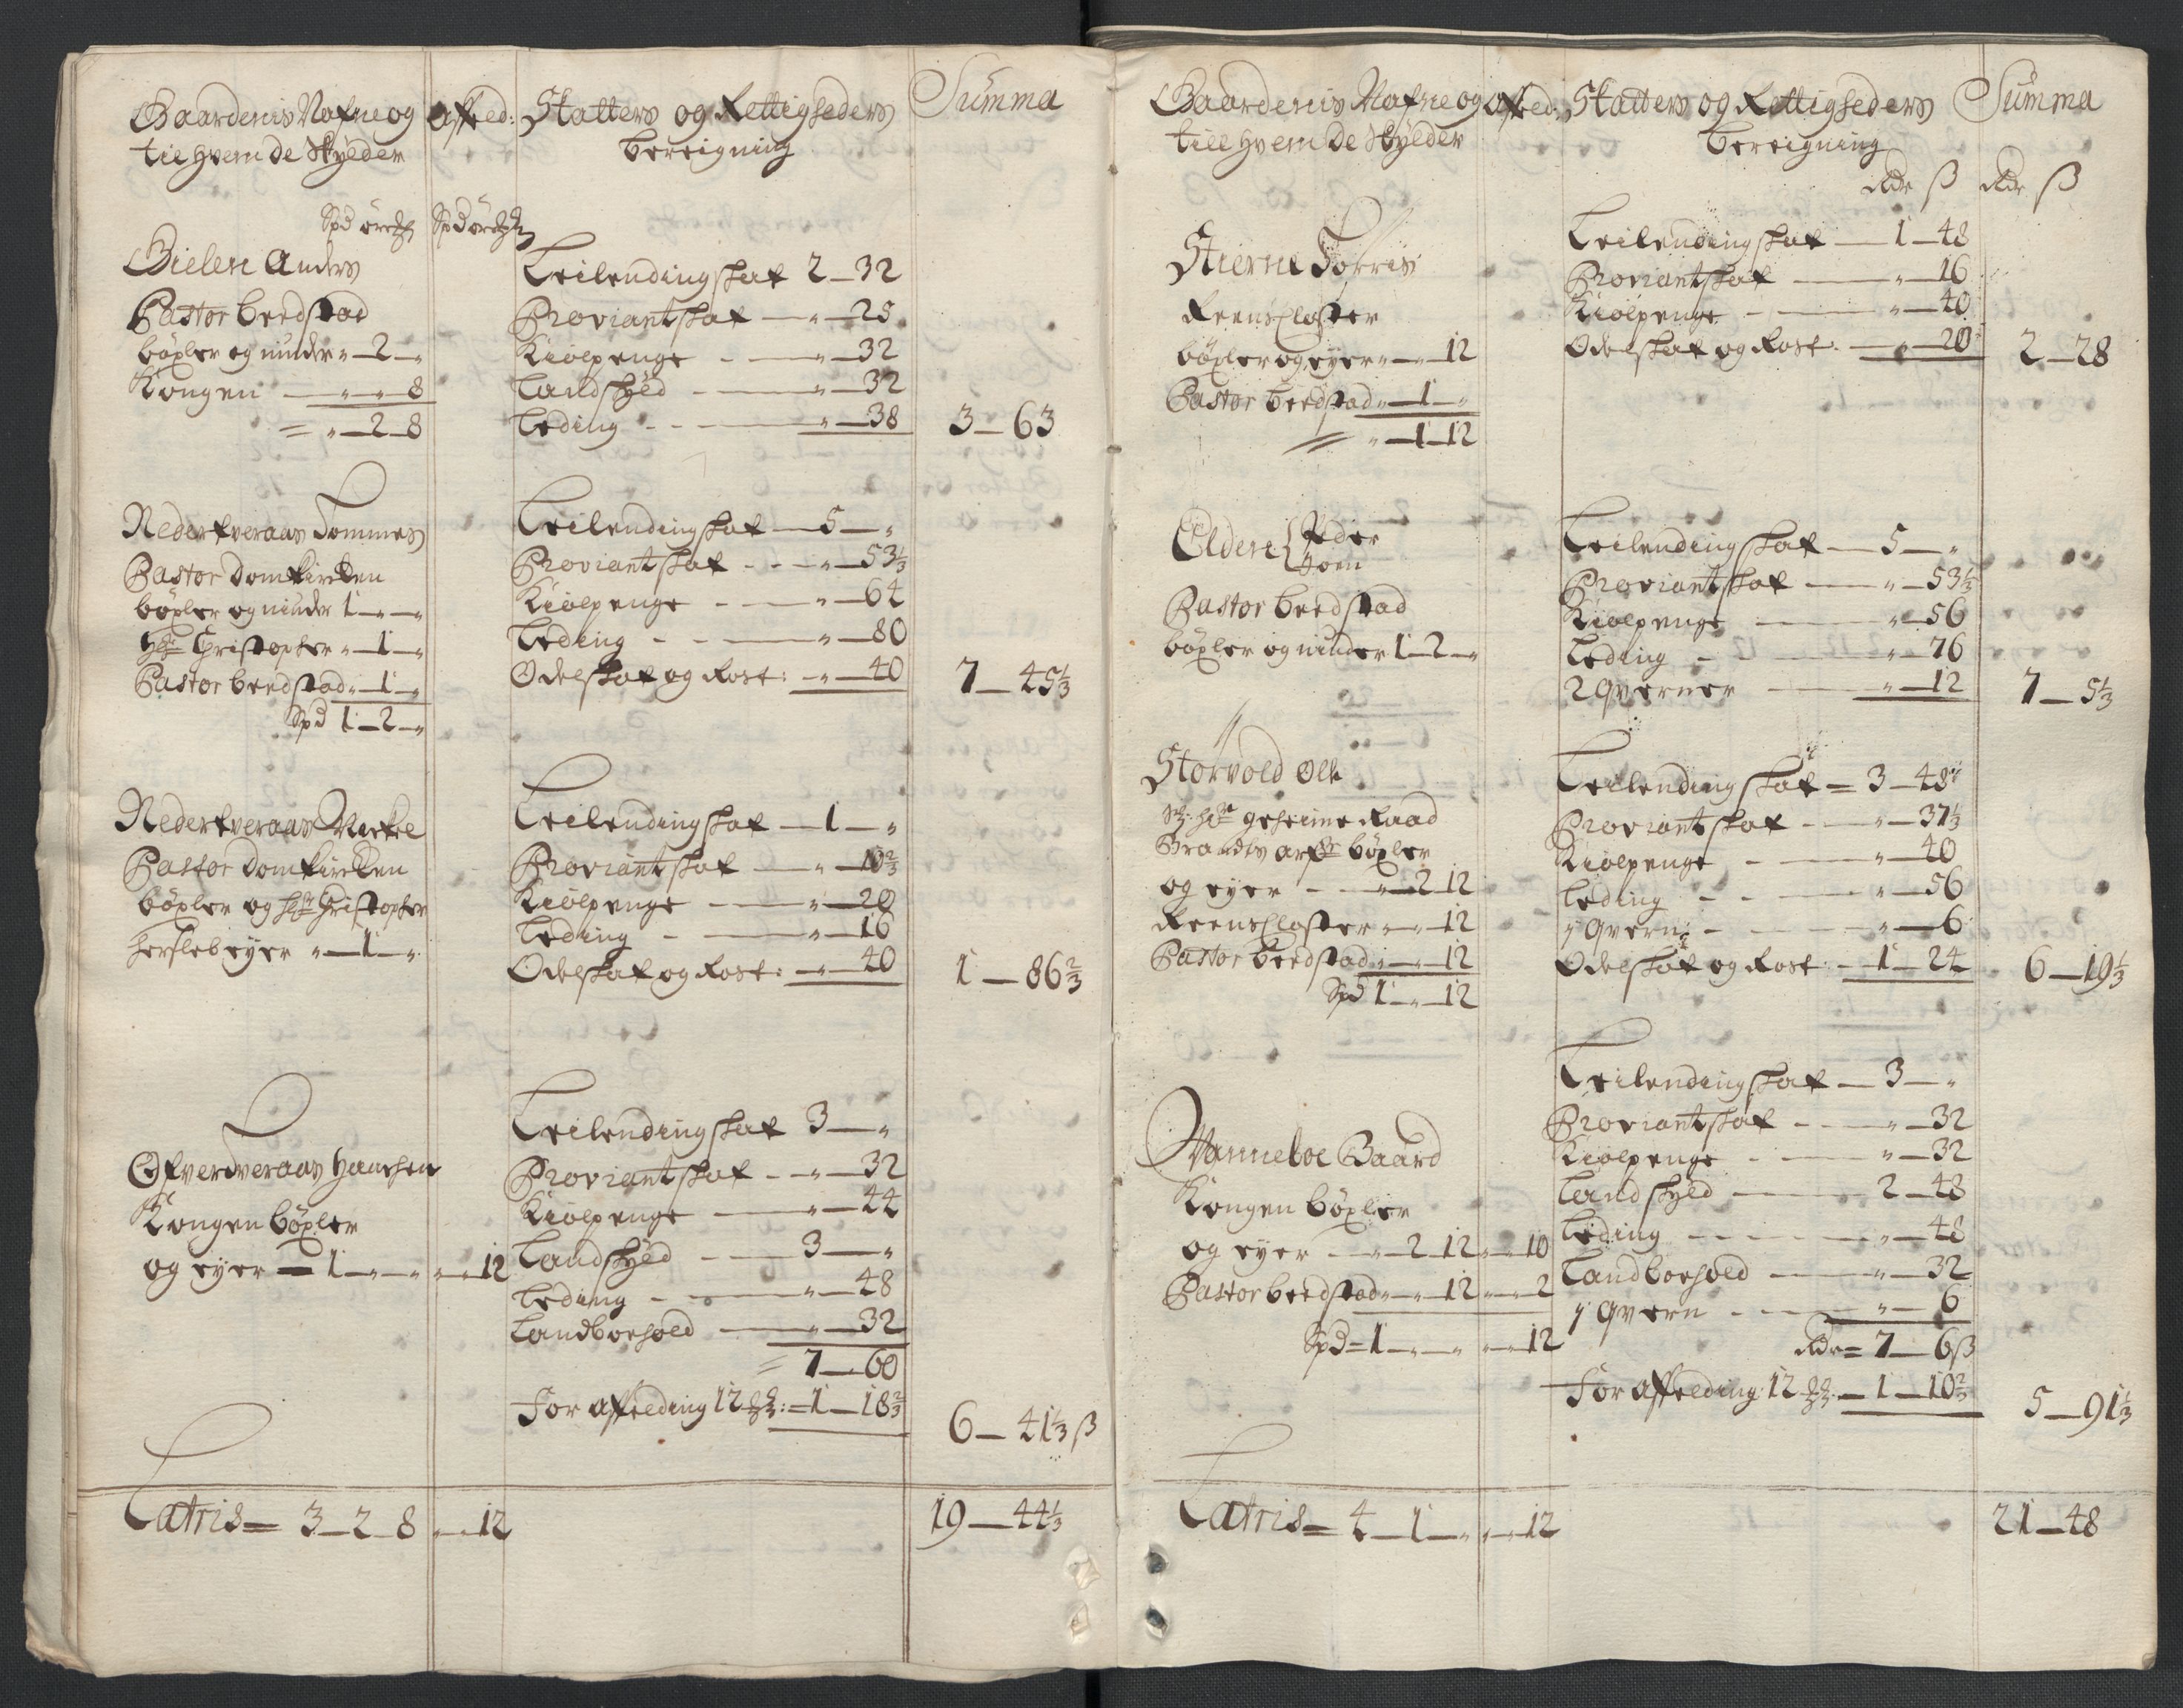 Gaardenis Nafne og
till hvem de Skylder
Affled:
Skatters og Rettigheders
bereigning
Summa
Spd ore
Spd ore
Bielen Anders
Pastor beedstad
böxler og under „—2—„
Kongen —„—„—8
= „—2—8
Leilendingskat 2—32
Proviantskat —„—25
Kiölpenge - —„—32
Landskyld —„—32
Leding - - —„—38
3—63
Nederkveraas Tommes
Pastor domkircken
böxler og under 1—„—„
Hr Christopher „—1—„
Pastor beedstad „—1—„
Spd 1—2—„
Leilendingskat —5—„
Proviantskat - - -„—53⅓
Kiölpenge - —„—64
Leding - - —„—80
Odelskat og Rost: —„—40
7—45⅓
Nederkveraas Mickel
Pastor domkircken
böxler og Hr Christopher
Hersleb eyer „—1—„
Leilendingskat —1—„
Proviantskat —„—10⅔
Kiölpenge —„—20
Leding - —„—16
Odelskat og Rost: —„—40
1—86⅔
Ofverdveraas Hanssen
Kongen böxler
og eyer — 1—„—„ „—„—12
Leilendingskat 3—„
Proviantskat - -„—32
Kiölpenge —„—44
Landskyld - — 3—„
Leding - —„—48
Landboehold —„—32
= 7—60
For affelding 12 : =1—18⅔
6—41⅓ ß
Latris= 3—2—8 „—„—12
19—44⅓
Gaardenis Nafne og
till hvem de Skylder
Affled:
Skatters og Rettigheders
bereigning
Summa
Rdr ß
Rdr ß
Stierne Torris
Reenscloster
böxler og eyer „—„—12
Pastor beedstad „—1—„
= „—1—12
Leilendingskat —1—48
Proviantskat —„—16
Kiölpenge - —„—40
Odelskat og Rost: —„—20
2—28
Eldene { Peder
Joen
Pastor beedstad
böxler og under 1—2—„
Leilendingskat —5—„
Proviantskat —„—53⅓
Kiölpenge —„—56
Leding - - —„—76
2 qverner —„—12
7—5⅓
Storvold Ole
Sl: Hr geheime Raad
Brandts arf: böxler
og eyer - -„—2—12
Reenscloster „—„—12
Pastor beedstad „—„—12
Spd 1—„—12
Leilendingskat = 3—48
Proviantskat - -„—37⅓
Kiölpenge - —„—40
Leding - - —„—56
1 qvern: - —„—6
Odelskat og Rost: -1—24
6—19⅓
Vanneloe Baard
Kongen böxler
og eyer —„—2—12 „—10
Pastor beedstad „—„—12 „—„—2
Spd=1—„—„ „—„—12
Leilendingskat —3—„
Proviantskat - -„—32
Kiölpenge - —„—32
Landskyld — 2—48
Leding - - —„—48
Landboehold —„—32
1 qvern - —„—6
Rdr= 7—6 ß
For affelding 12 : —1—10⅔
5—91⅓
Latris= 4—1—„ „—„—12
21—48